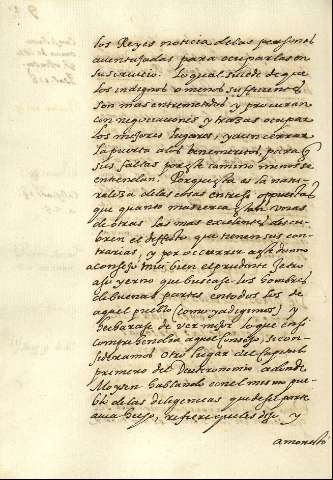 los Reyes noticia de las personas
aventajadas para ocuparlas en
su servicio. Lo qual sucede de que
los indignos o menos suficientes
son mas entremetidos y procuran
con negociaciones y trazas ocupar
los mejores lugares, y aun cerrar
la puerta a los benemeritos, para q
sus faltas por este camino menos se
entiendan. Porque esta es la natu-
raleza de las cosas entre si opuestas
que quanto mas cerca estan unas
de otras las mas excelentes descu-
bren el deffecto que tienen sus con-
trarias, y por occurrir a este daño
aconsejo mui bien el prudente Jetro
a su yerno que buscase los hombres
de buenas partes en todos los de
aquel pueblo (como ya degimos) y
hecharase de ver mejor lo que en si
comprahendia aquel consejo, si con-
sideramos otro lugar del capitulo
primero del Deuteronomio adonde
Moysen hablando con el mismo pue-
blo de las diligencias que de su parte
avia hecho, refiere que les dijo, y
amonesto